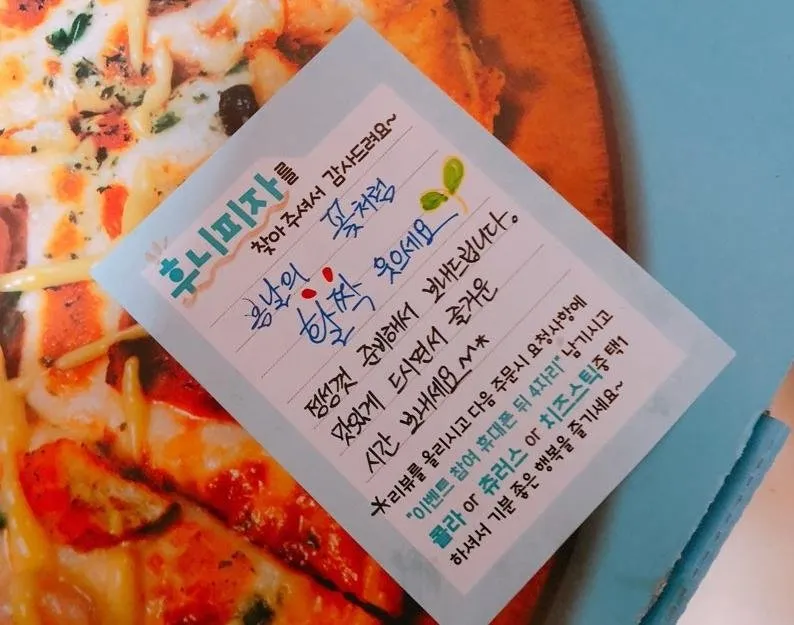 후니피자를
찾아주셔서 감사드려요~
봄날의 꽃처럼
활짝 웃으세요
정성껏 준비해서 보내드립니다.
맛있게 드시면서 즐거운
시간 보내세요~^*
*리뷰를 올리시고 다음 주문시 요청사항에
"이벤트 참여 휴대폰 뒤 4자리" 남기시고
콜라 or 츄러스 or 치즈스틱중 택1
하셔서 기분 좋은 행복을 즐기세요~